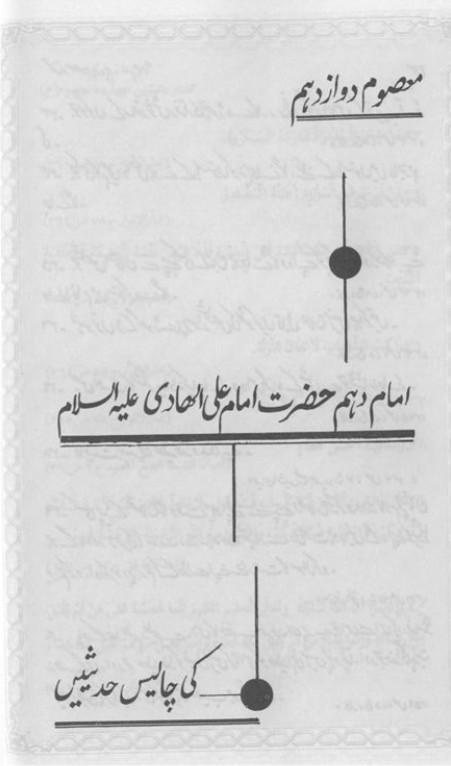 معصوم دوازدہم
امام دہم حضرت امام علی الھادی علیہ السلام
کی چالیس حدیثیں